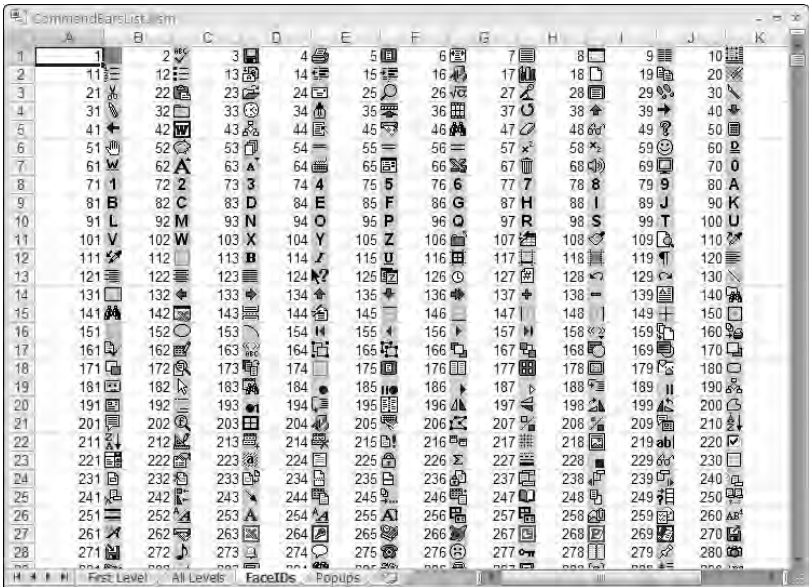 CommandBarsList.xlsm
A B C D E F G H I J K
1 1 2 ABC 3 4 5 6 7 8 9 10
2 11 12 13 14 15 16 17 18 19 20
3 21 22 23 24 25 26 √α 27 28 29 30
4 31 32 33 34 35 36 37 38 39 40
5 41 42 W 43 44 45 46 47 48 49 50
6 51 52 53 54 55 56 57 x² 58 x₂ 59 60 D
7 61 W 62 A 63 A 64 65 66 67 68 69 70 0
8 71 1 72 2 73 3 74 4 75 5 76 6 77 7 78 8 79 9 80 A
9 81 B 82 C 83 D 84 E 85 F 86 G 87 H 88 I 89 J 90 K
10 91 L 92 M 93 N 94 O 95 P 96 Q 97 R 98 S 99 T 100 U
11 101 V 102 W 103 X 104 Y 105 Z 106 107 108 109 110
12 111 112 113 B 114 I 115 U 116 117 118 119 ¶ 120
13 121 122 123 124 ? 125 126 127 # 128 129 130
14 131 132 133 134 135 136 137 138 139 140
15 141 142 143 144 145 146 147 148 149 150
16 151 152 153 154 155 156 157 158 159 160
17 161 162 163 ABC 164 165 166 167 168 169 170
18 171 172 173 174 175 176 177 178 179 180
19 181 182 183 184 185 186 187 188 189 190
20 191 192 193 194 195 196 197 198 199 200
21 201 202 203 204 205 206 207 208 209 210
22 211 212 213 214 215 216 217 218 219 ab 220
23 221 222 223 224 225 226 Σ 227 228 229 230
24 231 232 233 234 235 236 237 238 239 240
25 241 242 243 244 245 246 247 248 249 250
26 251 252 A 253 A 254 A 255 A 256 257 258 259 260 AB¹
27 261 262 263 264 265 266 267 268 269 270
28 271 272 273 274 275 276 277 278 279 280
First Level All Levels FaceIDs Popups